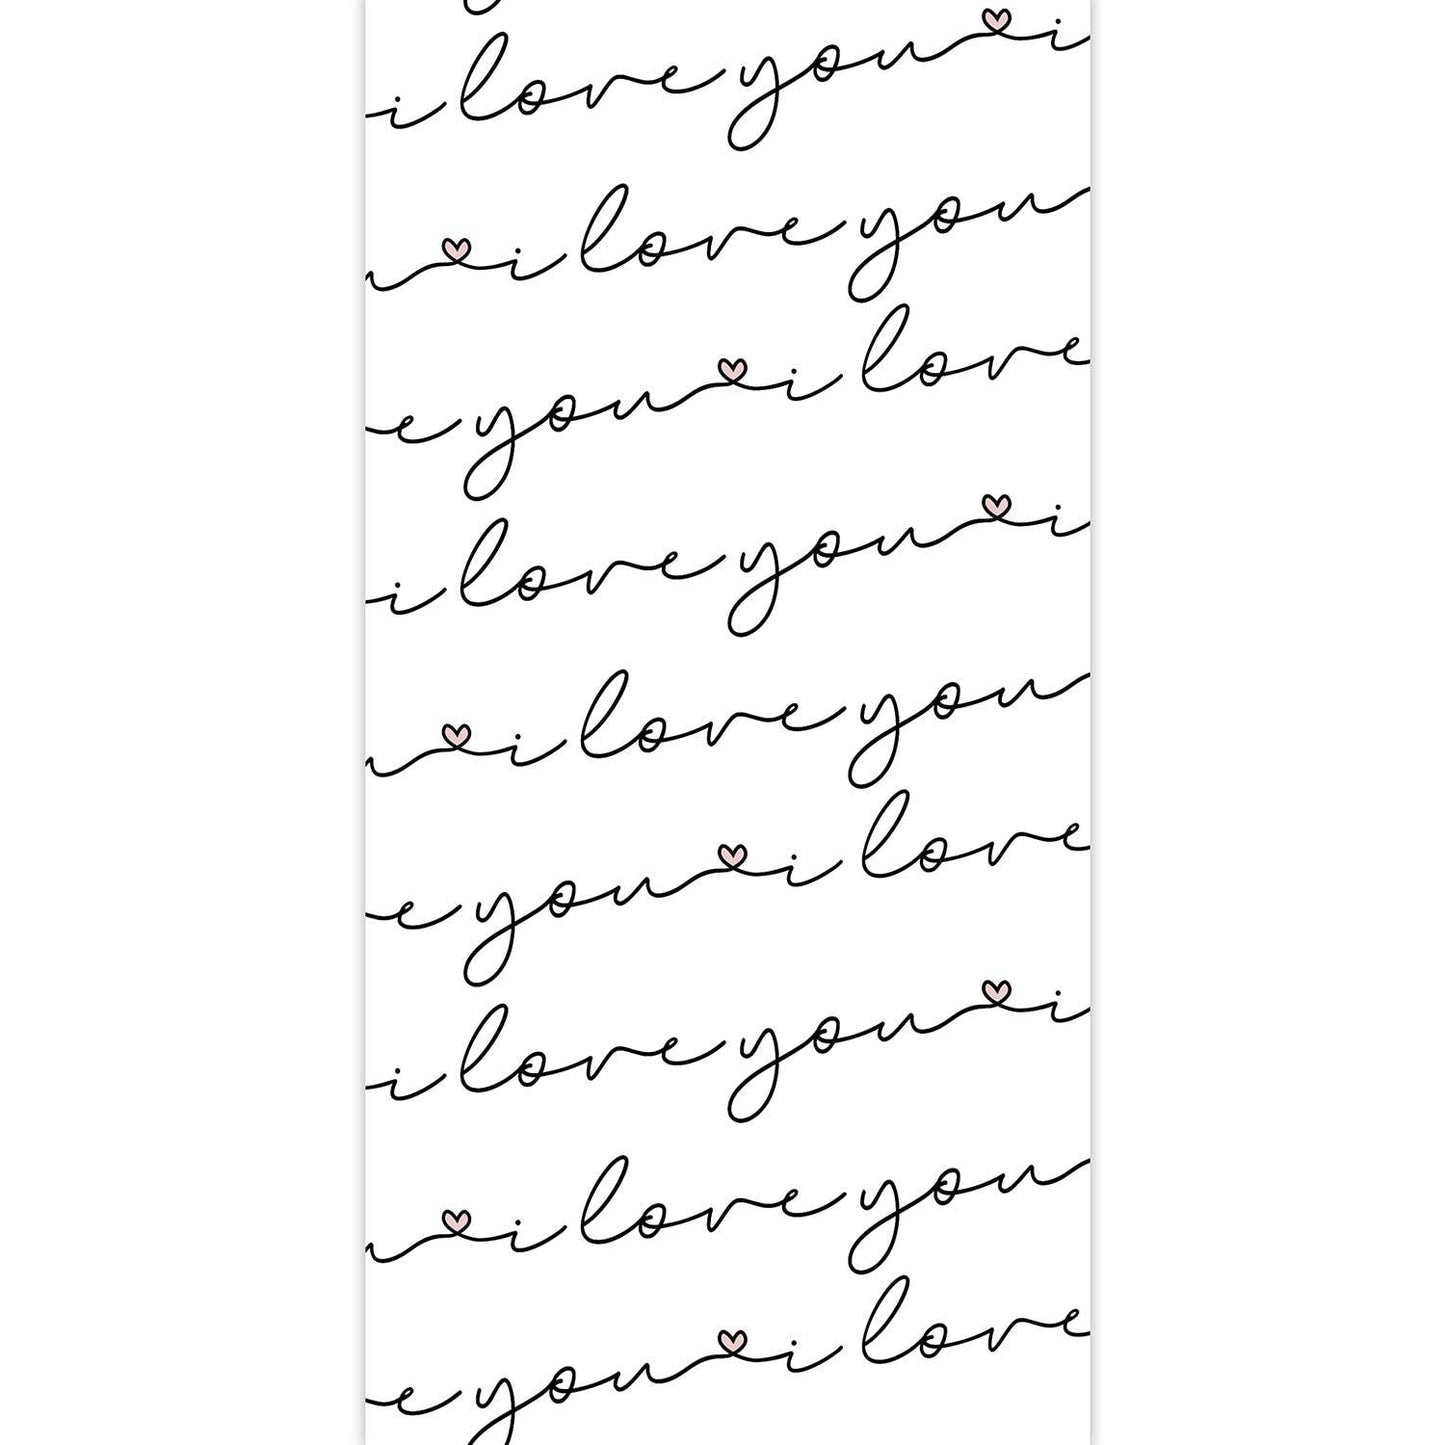 i love you i
u i love you
e you i love
i love you i
u i love you
e you i love
i love you i
u i love you
e you i love